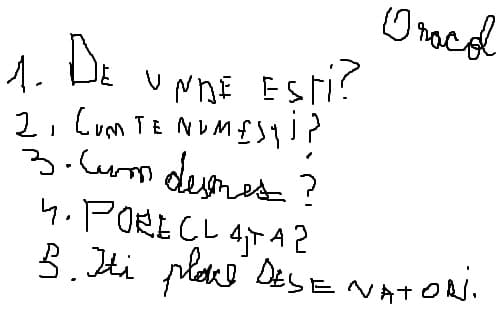 Oracol
1. DE UNDE ESTI?
2. CUM TE NUMESTI?
3. Cum desenes?
4. PORECLA TA?
5. Iti place DESENATORI.